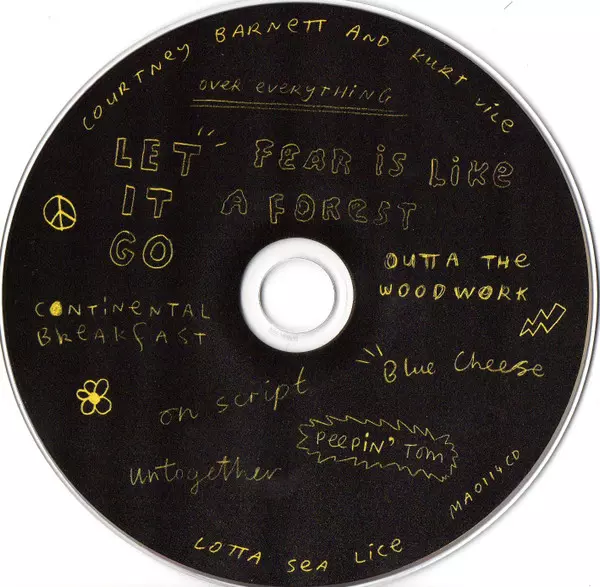 COURTNEY BARNETT AND KURT VILE
OVER EVERYTHING
LET
IT
GO
FEAR iS LiKE
A FOREST
OUTTA THE
WOODWORK
CONTiNENTAL
BREAKFAST
Blue Cheese
on script
PEEPiN' TOM
untogether
MA0114CD
LOTTA SEA LiCE